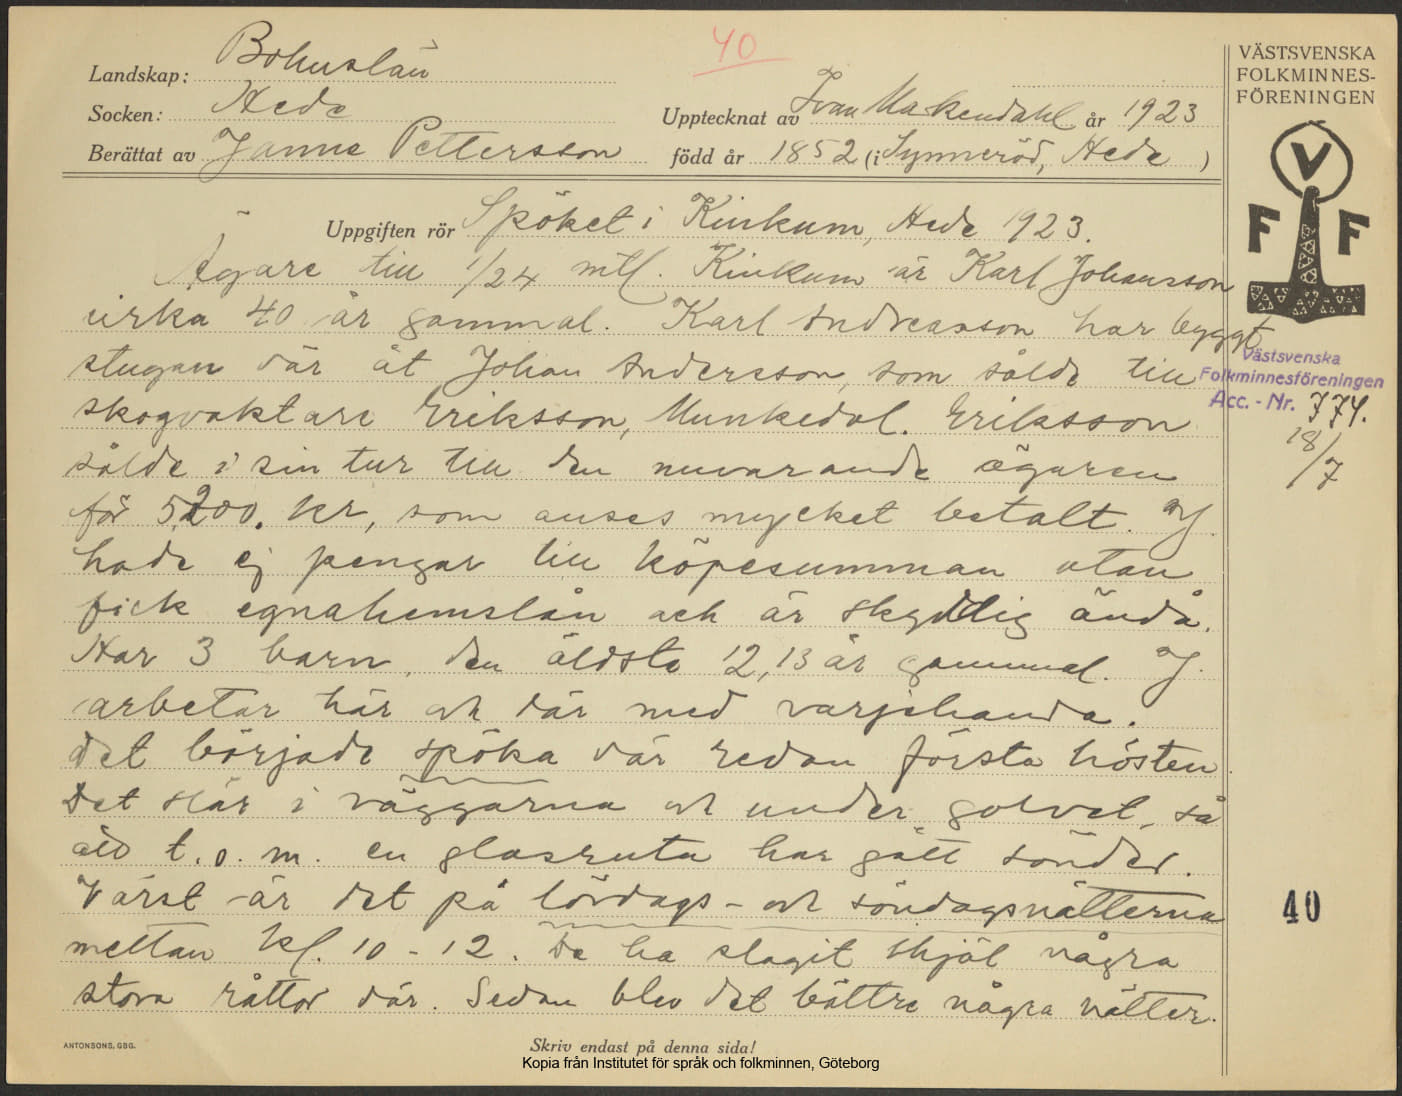 40
Landskap: Bohuslän
Socken: Hede
Upptecknat av Ivar Markendahl år 1923
Berättat av Janne Pettersson
född år 1852 (i Synneröd, Hede)
VÄSTSVENSKA
FOLKMINNES-
FÖRENINGEN
V
F F
Uppgiften rör Spöket i Kinkum, Hede 1923.
Ägare till 1/24 mtl. Kinkum är Karl Johansson
cirka 40 år gammal. Karl Andreasson har byggt
stugan där åt Johan Andersson, som sålde till
skogvaktare Eriksson, Munkedal. Eriksson
sålde i sin tur till den nuvarande ägaren
för 5,200. kr, som anses mycket betalt. J.
hade ej pengar till köpesumman utan
fick egnahemslån och är skyldig ändå.
Har 3 barn, den äldsta 12, 13 år gammal. J.
arbetar här och där med varjehanda.
Det började spöka där redan första hösten.
Det slår i väggarna och under golvet, så
att t.o.m. en glasruta har gått sönder.
Värst är det på lördags- och söndagsnätterna
mellan kl. 10 - 12. De ha slagit ihjäl några
stora råttor där. Sedan blev det bättre några nätter.
Västsvenska
Folkminnesföreningen
Acc. - Nr. 774.
18/7
40
ANTONSONS, GBG.
Skriv endast på denna sida!
Kopia från Institutet för språk och folkminnen, Göteborg